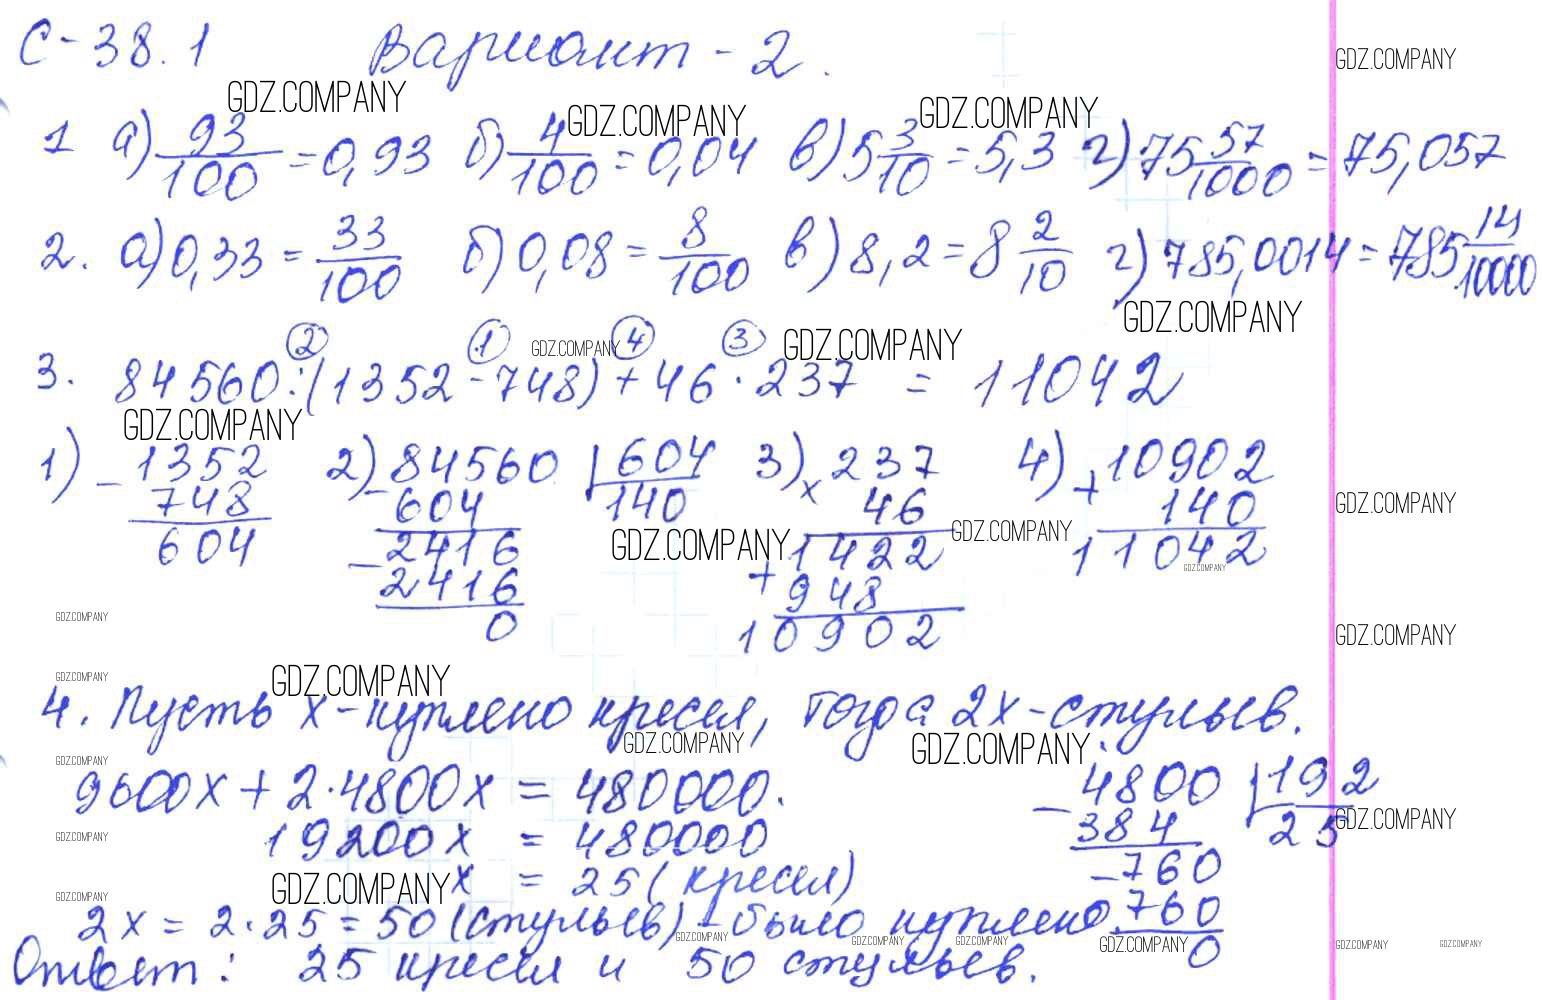 С-38.1 Вариант-2.
GDZ.COMPANY GDZ.COMPANY GDZ.COMPANY GDZ.COMPANY
1 а) 93/100 = 0,93 б) 4/100 = 0,04 в) 5 3/10 = 5,3 г) 75 57/1000 = 75,057
2. а) 0,33 = 33/100 б) 0,08 = 8/100 в) 8,2 = 8 2/10 г) 785,0014 = 785 14/10000
GDZ.COMPANY
② ① GDZ.COMPANY ④ ③ GDZ.COMPANY
3. 84560:(1352-748)+46·237 = 11042
GDZ.COMPANY
1) 1352 2) 84560 | 604 3) 237 4) 10902
- 748 - 604 140 × 46 + 140
604 - 2416 1422 11042
2416 + 948
0 10902
GDZ.COMPANY GDZ.COMPANY GDZ.COMPANY GDZ.COMPANY
GDZ.COMPANY GDZ.COMPANY
GDZ.COMPANY GDZ.COMPANY
4. Пусть х-куплено кресел, тогда 2х-стульев.
GDZ.COMPANY GDZ.COMPANY GDZ.COMPANY
9600х + 2·4800х = 480000. - 4800 | 192
19200х = 480000 384 25
GDZ.COMPANY GDZ.COMPANY
х = 25 (кресел) - 760
GDZ.COMPANY GDZ.COMPANY
2х = 2·25 = 50 (стульев) - было куплено 760
GDZ.COMPANY GDZ.COMPANY GDZ.COMPANY GDZ.COMPANY GDZ.COMPANY GDZ.COMPANY
0
Ответ: 25 кресел и 50 стульев.